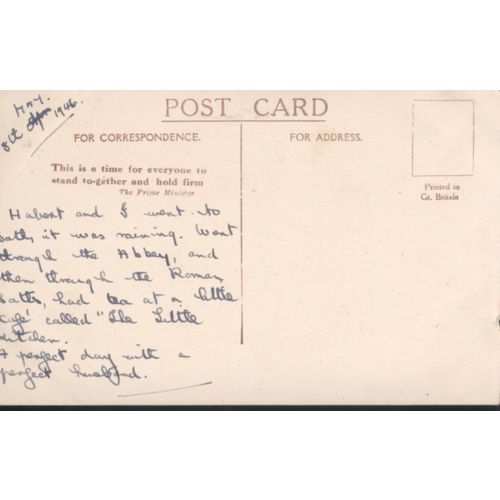 MAY.
8th Apr 1946.
POST CARD
FOR CORRESPONDENCE.
FOR ADDRESS.
This is a time for everyone to
stand to-gether and hold firm
The Prime Minister
Printed in
Gt. Britain
and I went to
Bath, it was raining. Went
through the Abbey, and
then through the Roman
Baths, had tea at a little
café called "The Little
Kitchen.
A perfect day with a
perfect husband.